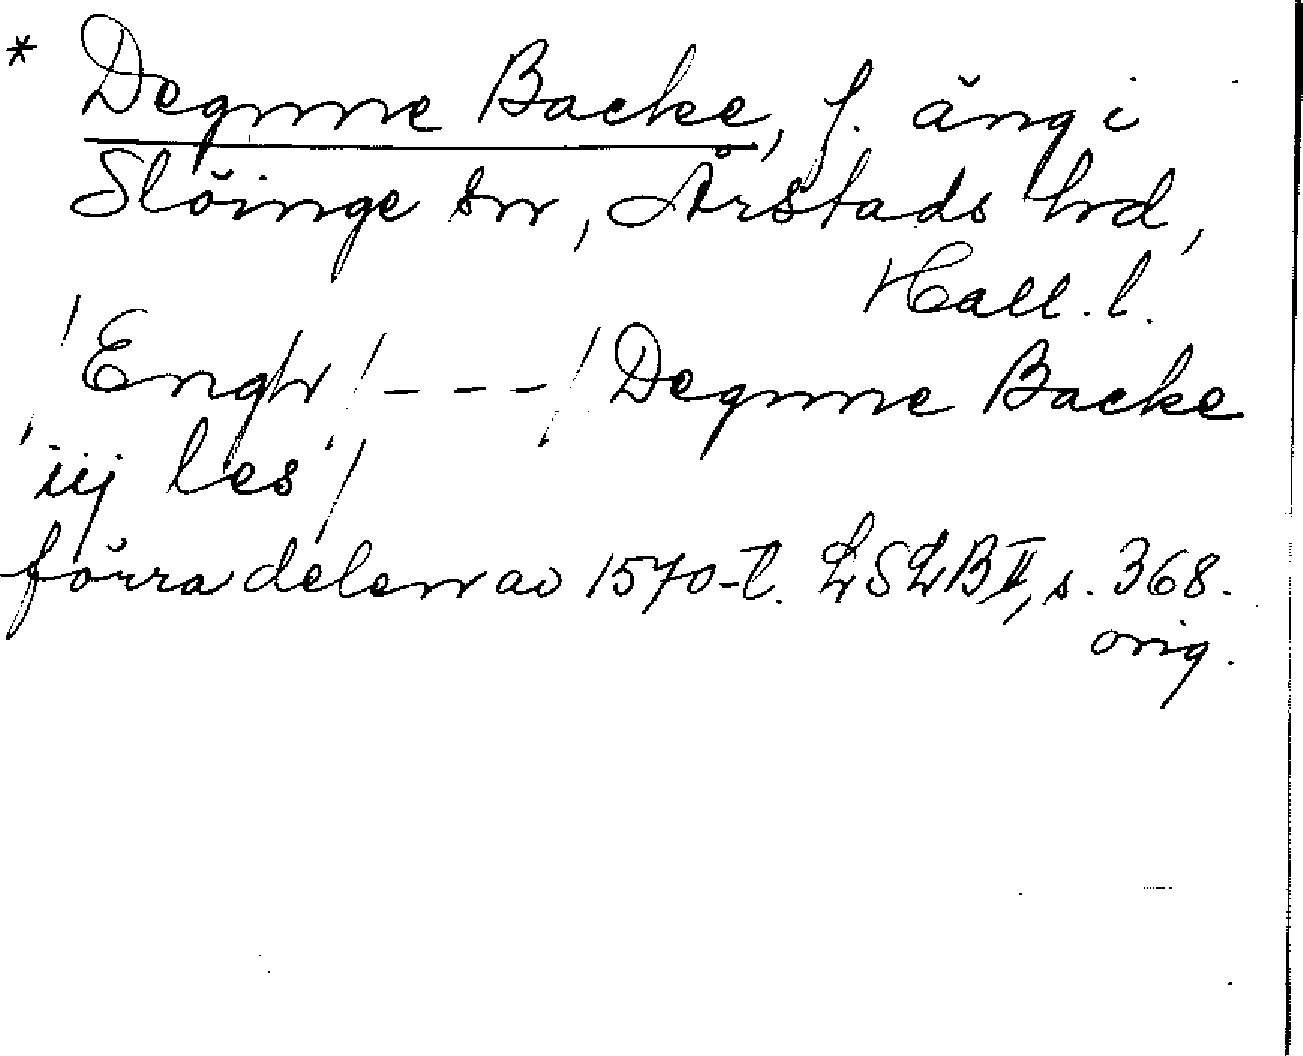 * Degnne Backe, f. äng i
Slöinge sn, Årstads hd,
Hall. l.
/Engh/ - - - / Degnne Backe
iij les/
förra delen av 1570-t. LSLB II, s. 368.
orig.